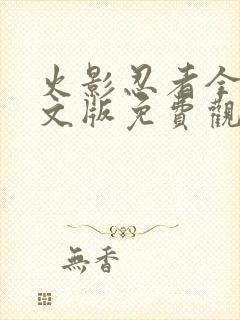 火影忍者全
文版免費觀
無香